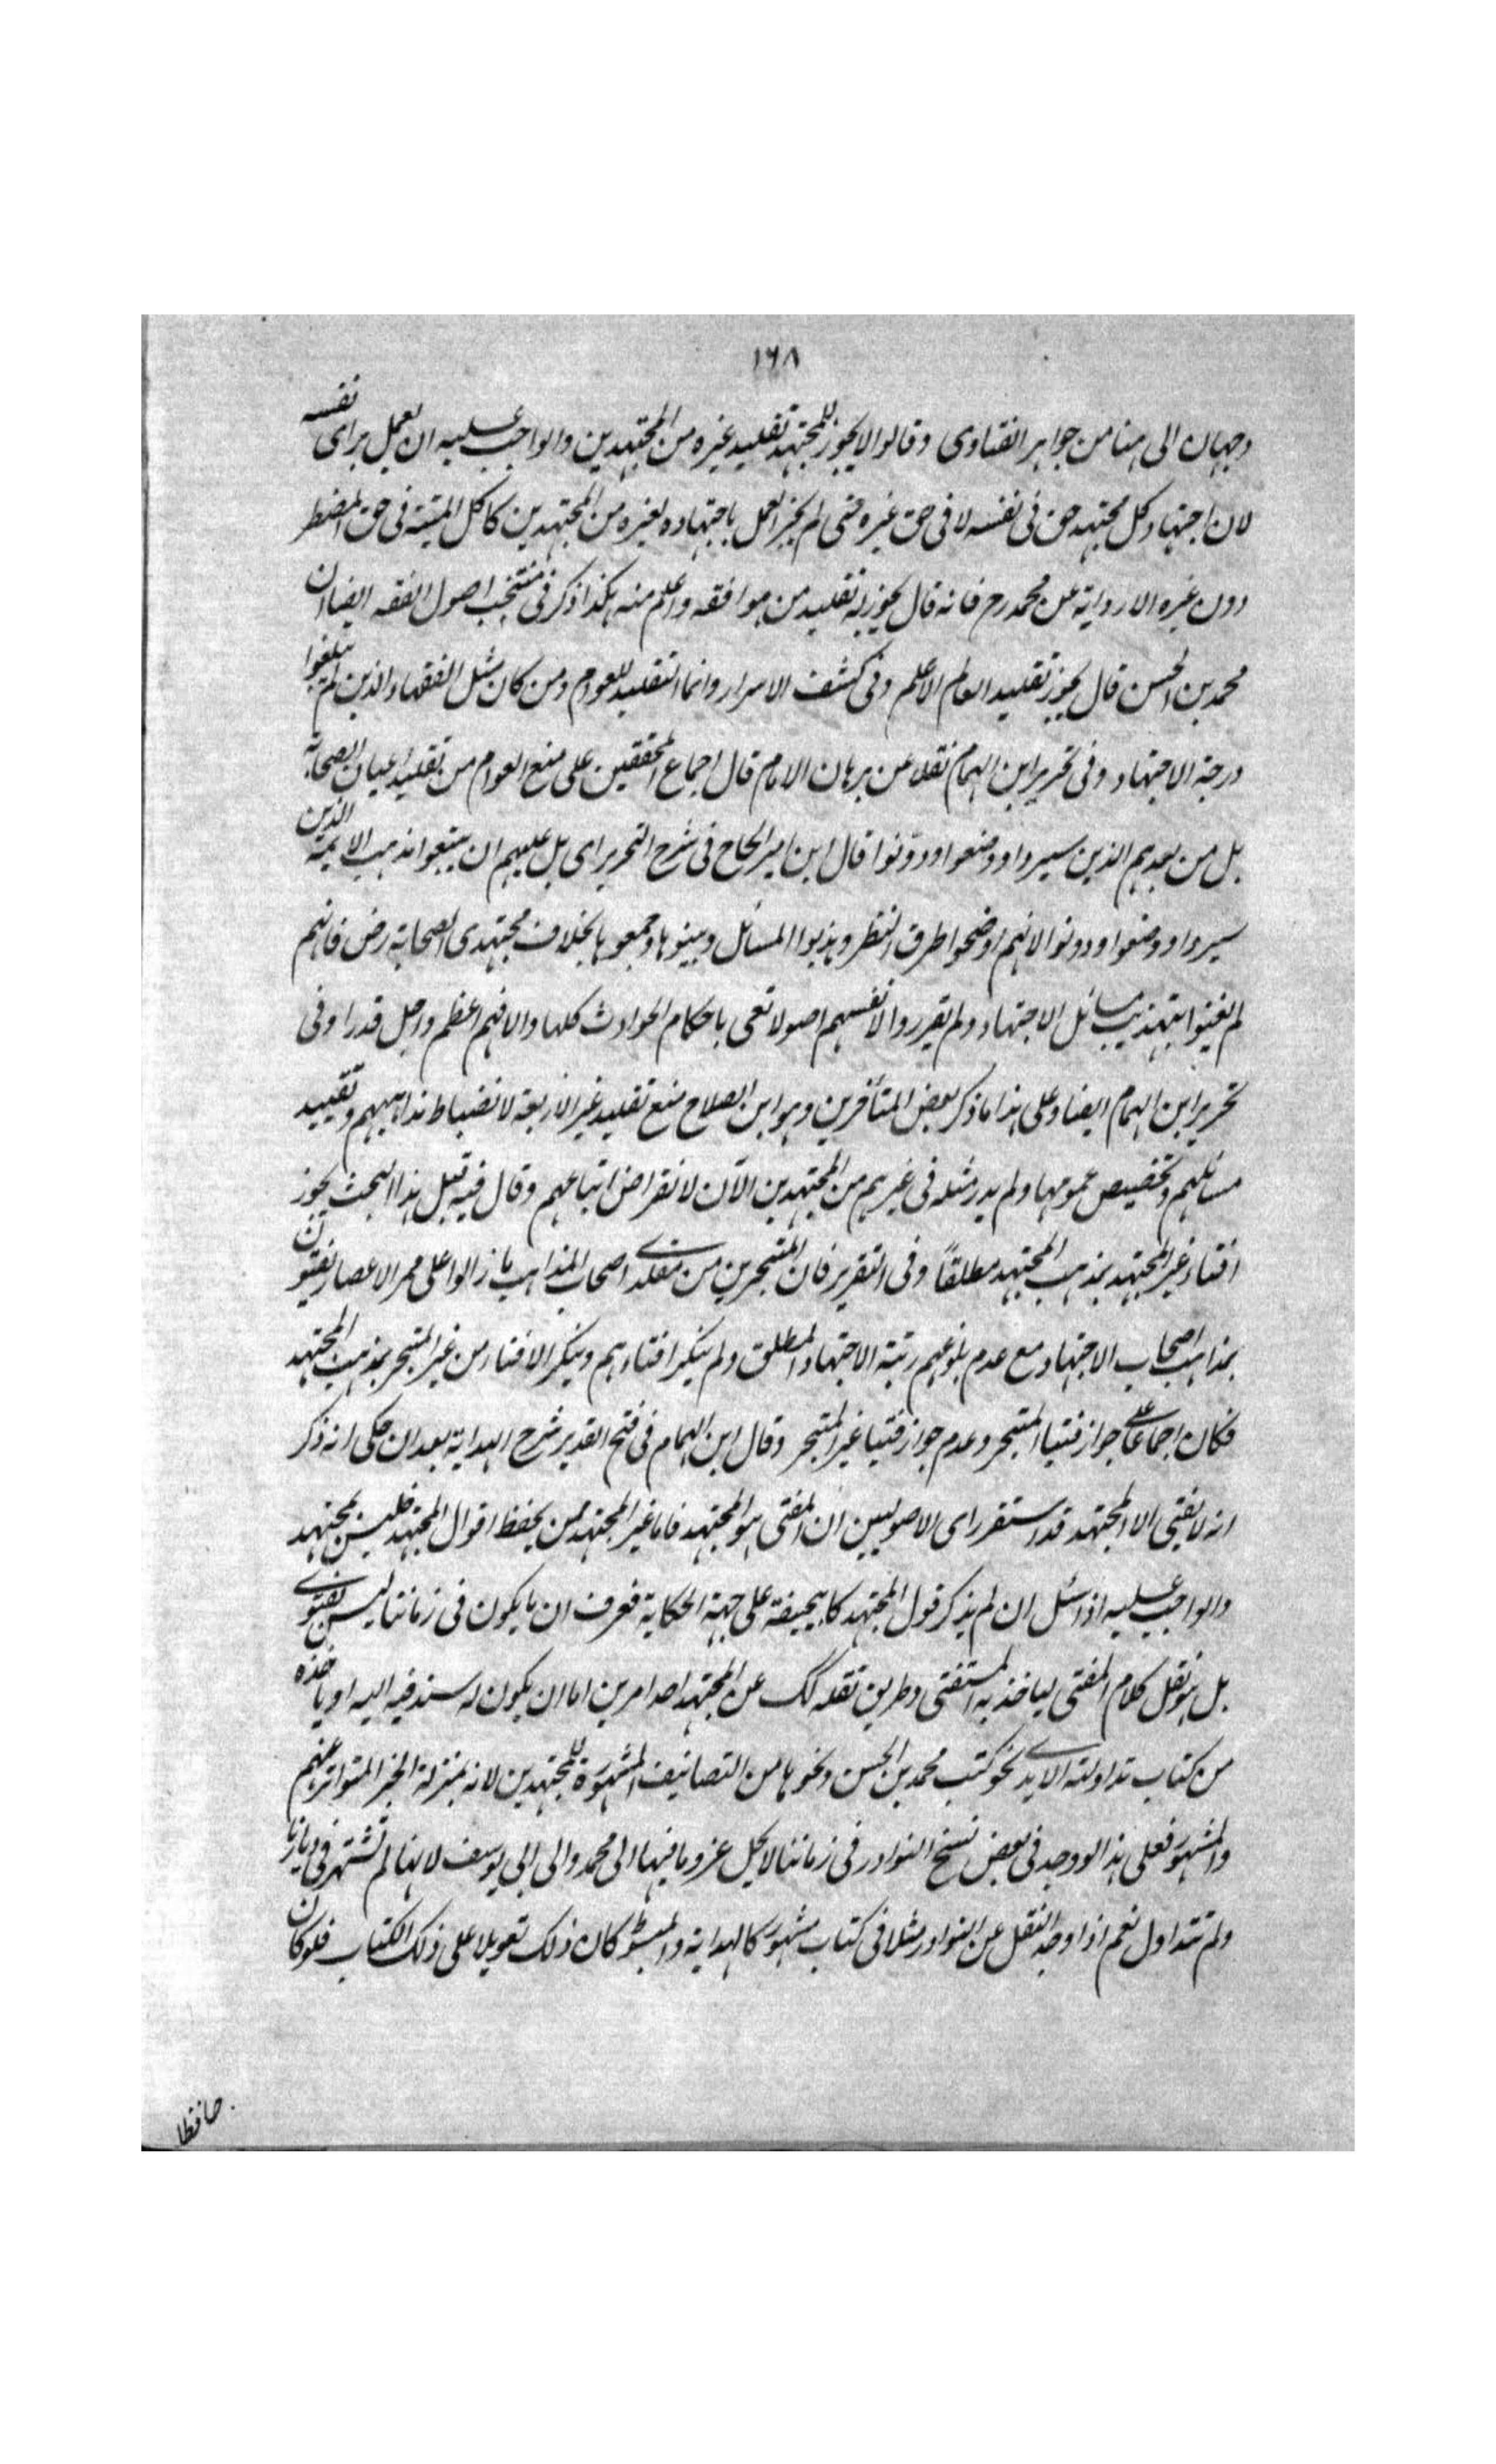 ١٦٨
وجهان الى هنا من جواهر الفتاوى وقالوا لا يجوز للمجتهد تقليد غيره من المجتهدين والواجب عليه ان يعمل براى نفسه
لان اجتهاد كل مجتهد حق فى نفسه لا فى حق غيره حتى لم يجز العمل باجتهاده لغيره من المجتهدين كاكل الميتة فى حق المضطر
دون غيره الا رواية عن محمد رح فانه قال يجوز له تقليد من هو افقه واعلم منه هكذا ذكر فى منتخب اصول الفقه ايضا ان
محمد بن الحسن قال يجوز تقليد العالم الاعلم وفى كشف الاسرار وانما التقليد للعوام ومن كان مثل الفقهاء الذين لم يبلغوا
درجة الاجتهاد وفى تحرير ابن الهمام نقلا عن برهان الامام قال اجماع المحققين على منع العوام من تقليد اعيان الصحابة
بل من بعدهم الذين سبروا ووضعوا ودونوا قال ابن امير الحاج فى شرح التحرير اى بل عليهم ان يتبعوا مذهب الايمة الذين
سبروا ووضعوا ودونوا لانهم اوضحوا طرق النظر وهذبوا المسائل وبينوها وجمعوها بخلاف مجتهدى الصحابة رض فانهم
لم يعتنوا بتهذيب مسائل الاجتهاد ولم يقرروا لانفسهم اصولا تفى باحكام الحوادث كلها والا فهم اعظم واجل قدرا وفى
تحرير ابن الهمام ايضا وعلى هذا ما ذكر بعض المتأخرين وهو ابن الصلاح منع تقليد غير الاربعة لانضباط مذاهبهم وتقييد
مسائلهم وتخصيص عمومها ولم يدر مثله فى غيرهم من المجتهدين الآن لانقراض اتباعهم وقال فيه قبل هذا البحث يجوز
افتاء غير المجتهد بمذهب المجتهد مطلقاً وفى التقرير فان المتبحرين من مقلدى اصحاب المذاهب ما زالوا على ممر الاعصار يفتون
بمذاهب اصحاب الاجتهاد مع عدم بلوغهم رتبة الاجتهاد المطلق ولم ينكر افتاءهم وينكر الافتاء من غير المتبحر بمذهب المجتهد
فكان اجماعا على جواز فتيا المتبحر وعدم جواز فتيا غير المتبحر وقال ابن الهمام فى فتح القدير شرح الهداية بعد ان حكى انه ذكر
انه لا يفتى الا المجتهد قد استقر راى الاصوليين ان المفتى هو المجتهد فاما غير المجتهد ممن يحفظ اقوال المجتهد فليس بمجتهد
والواجب عليه اذا سئل ان لم يذكر قول المجتهد كابيحنيفة على جهة الحكاية فعرف ان ما يكون فى زماننا ليس بفتوى
بل هو نقل كلام المفتى ليأخذ به المستفتى وطريق نقله لك عن المجتهد احد امرين اما ان يكون له سند فيه اليه او يأخذه
من كتاب تداولته الايدى نحو كتب محمد بن الحسن ونحوها من التصانيف المشهورة للمجتهدين لانه بمنزلة الخبر المتواتر عنهم
والمشهور فعلى هذا لو وجد فى بعض نسخ النوادر فى زماننا لا يحل عزو ما فيها الى محمد والى ابى يوسف لانها لم تشتهر فى ديارنا
ولم تتداول نعم اذا وجد النقل عن النوادر مثلا فى كتاب مشهور كالهداية والمبسوط كان ذلك تعويلا على ذلك الكتاب فلو كان
حافظا